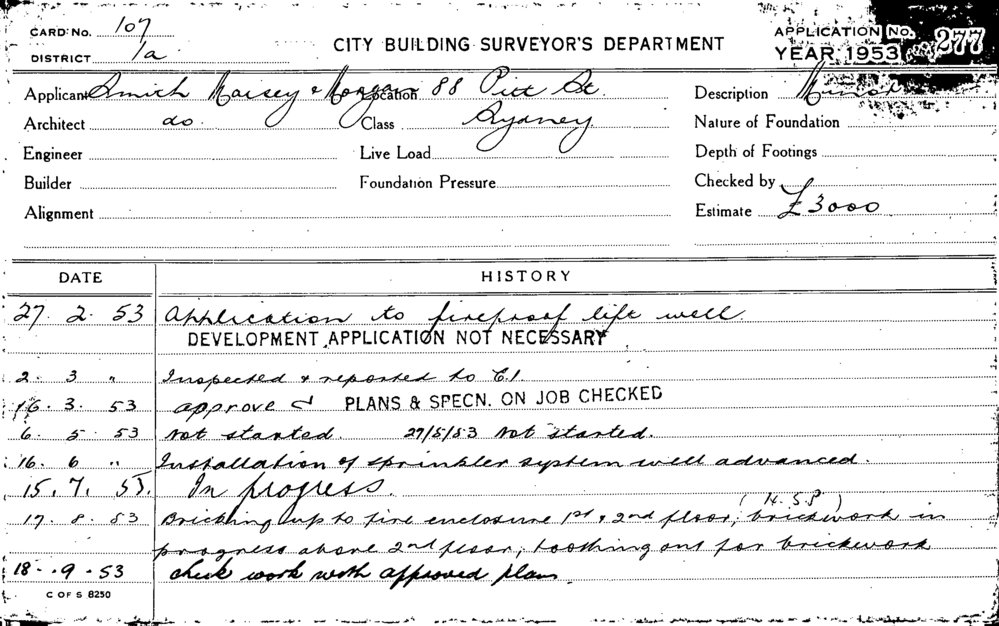 CARD: No. 107
DISTRICT 1a
CITY BUILDING SURVEYOR'S DEPARTMENT
APPLICATION No. 277
YEAR 1953
Applicant Smith Location 88 Pitt St.
Description
Architect do. Class Sydney
Nature of Foundation
Engineer Live Load
Depth of Footings
Builder Foundation Pressure
Checked by
Alignment
Estimate £3000
DATE HISTORY
27. 2. 53 Application to fireproof lift well.
DEVELOPMENT APPLICATION NOT NECESSARY
2. 3 " Inspected & reported to C.I.
16. 3. 53 approve PLANS & SPECN. ON JOB CHECKED
6. 5. 53 Not started. 27/5/53 Not started.
16. 6 " Installation of sprinkler system well advanced.
15. 7. 53. In progress.
17. 8. 53 Bricking up to fire enclosure 1st & 2nd floor, (H.S.P) brickwork in
progress above 2nd floor, toothing out for brickwork
18. 9. 53 check work with approved plan.
C OF S 8250